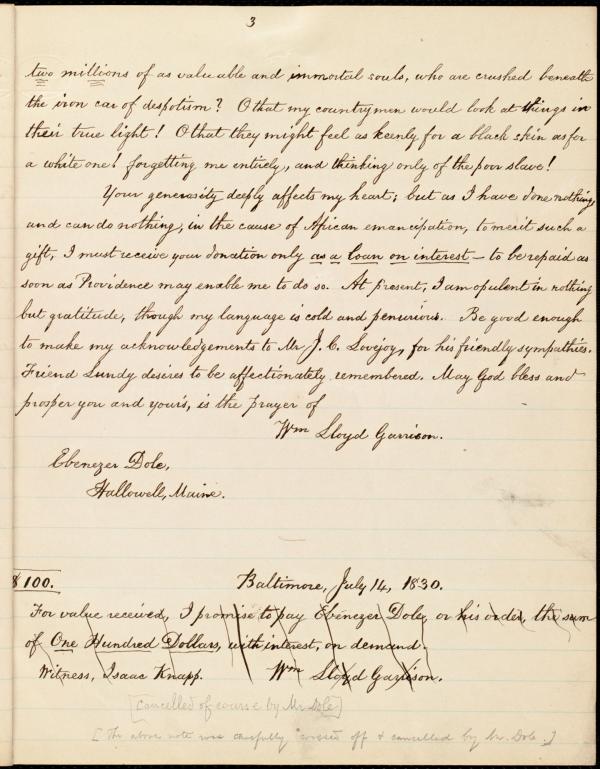 3
two millions of as valuable and immortal souls, who are crushed beneath
the iron car of despotism? O that my countrymen would look at things in
their true light! O that they might feel as keenly for a black skin as for
a white one! forgetting me entirely, and thinking only of the poor slave!
Your generosity deeply affects my heart; but as I have done nothing,
and can do nothing, in the cause of African emancipation, to merit such a
gift, I must receive your donation only as a loan on interest — to be repaid as
soon as Providence may enable me to do so. At present, I am opulent in nothing
but gratitude, though my language is cold and penurious. Be good enough
to make my acknowledgements to Mr J. C. Lovejoy, for his friendly sympathies.
Friend Lundy desires to be affectionately remembered. May God bless and
prosper you and yours, is the prayer of
Wm Lloyd Garrison.
Ebenezer Dole,
Hallowell, Maine.
$100.
Baltimore, July 14, 1830.
For value received, I promise to pay Ebenezer Dole, or his order, the sum
of One Hundred Dollars, with interest, on demand.
Witness, Isaac Knapp. Wm Lloyd Garrison.
[Cancelled of course by Mr Dole]
[The above note was carefully crossed off & cancelled by Mr. Dole.]